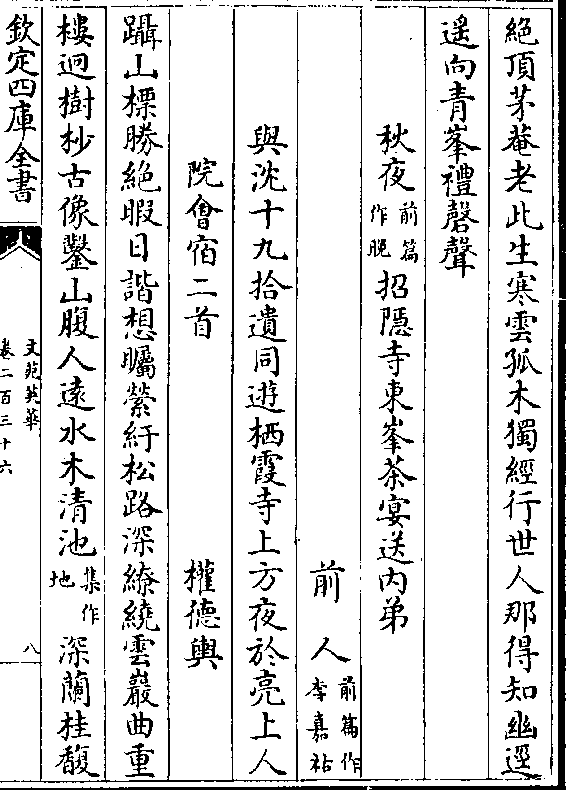 絶頂茅菴老此生寒雲孤木獨經行世人那得知幽逕
遥向青峯禮磬聲
秋夜前篇作晚招隱寺東峯茶宴送内弟
前人前篇作李嘉祐
與沈十九拾遺同遊栖霞寺上方夜於亮上人
院會宿二首
權德輿
躡山標勝絶暇日諧想矚縈紆松路深繚繞雲巖曲重
樓迥樹杪古像鑿山腹人遠水木清池集作地深蘭桂馥
欽定四庫全書
文苑英華
卷二百三十六
八